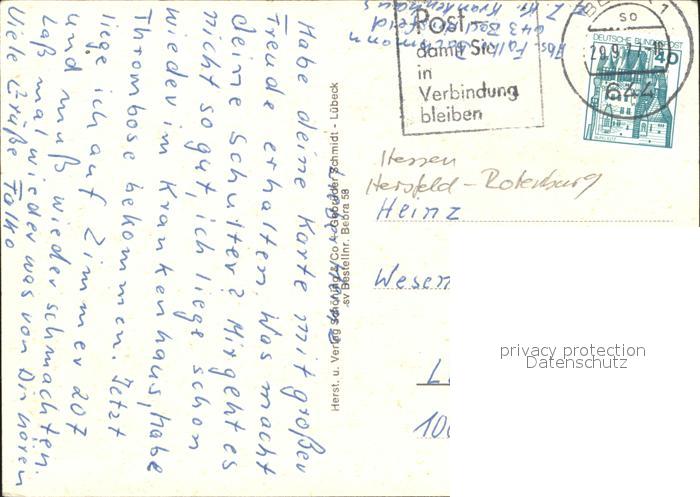 Habe deine Karte mit großer
Freude erhalten. Was macht
deine Schulter? Mir geht es
nicht so gut, ich liege schon
wieder im Krankenhaus, habe
Thrombose bekommen. Jetzt
liege ich auf Zimmer 207
und muß wieder schmachten.
Laß mal wieder was von Dir hören
Viele Grüße Falko
Abs. Falko
643 Bad Hersfeld
Kr. Krankenhaus
Herst. u. Verlag Schöning & Co + Gebrüder Schmidt - Lübeck
sv Bestellnr. Bebra 58
Post
damit Sie
in
Verbindung
bleiben
BEBRA 1
so
29.9.77-18
644
DEUTSCHE BUNDESPOST
40
Hessen
Hersfeld-Rotenburg
Heinz
Wesen
L
100
privacy protection
Datenschutz